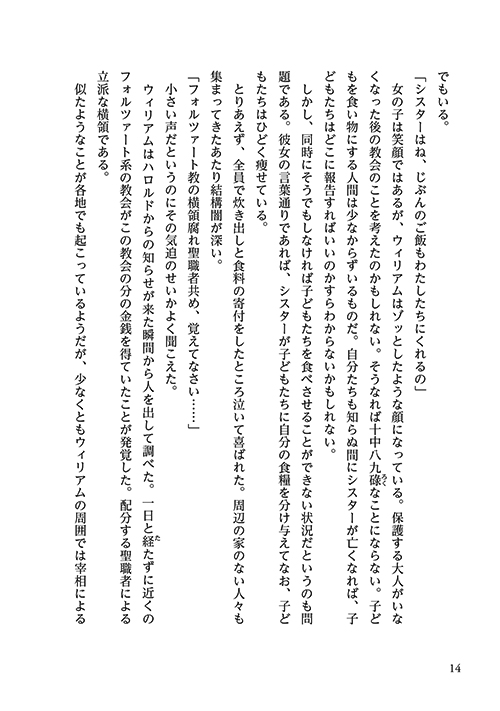 でもいる。
「シスターはね、じぶんのご飯もわたしたちにくれるの」
女の子は笑顔ではあるが、ウィリアムはゾッとしたような顔になっている。保護する大人がいな
くなった後の教会のことを考えたのかもしれない。そうなれば十中八九碌なことにならない。子ど
もを食い物にする人間は少なからずいるものだ。自分たちも知らぬ間にシスターが亡くなれば、子
どもたちはどこに報告すればいいのかすらわからないかもしれない。
しかし、同時にそうでもしなければ子どもたちを食べさせることができない状況だというのも問
題である。彼女の言葉通りであれば、シスターが子どもたちに自分の食糧を分け与えてなお、子ど
もたちはひどく痩せている。
とりあえず、全員で炊き出しと食料の寄付をしたところ泣いて喜ばれた。周辺の家のない人々も
集まってきたあたり結構闇が深い。
「フォルツァート教の横領腐れ聖職者共め、覚えてなさい……」
小さい声だというのにその気迫のせいかよく聞こえた。
ウィリアムはハロルドからの知らせが来た瞬間から人を出して調べた。一日と経たずに近くの
フォルツァート系の教会がこの教会の分の金銭を得ていたことが発覚した。配分する聖職者による
立派な横領である。
似たようなことが各地でも起こっているようだが、少なくともウィリアムの周囲では宰相による
14